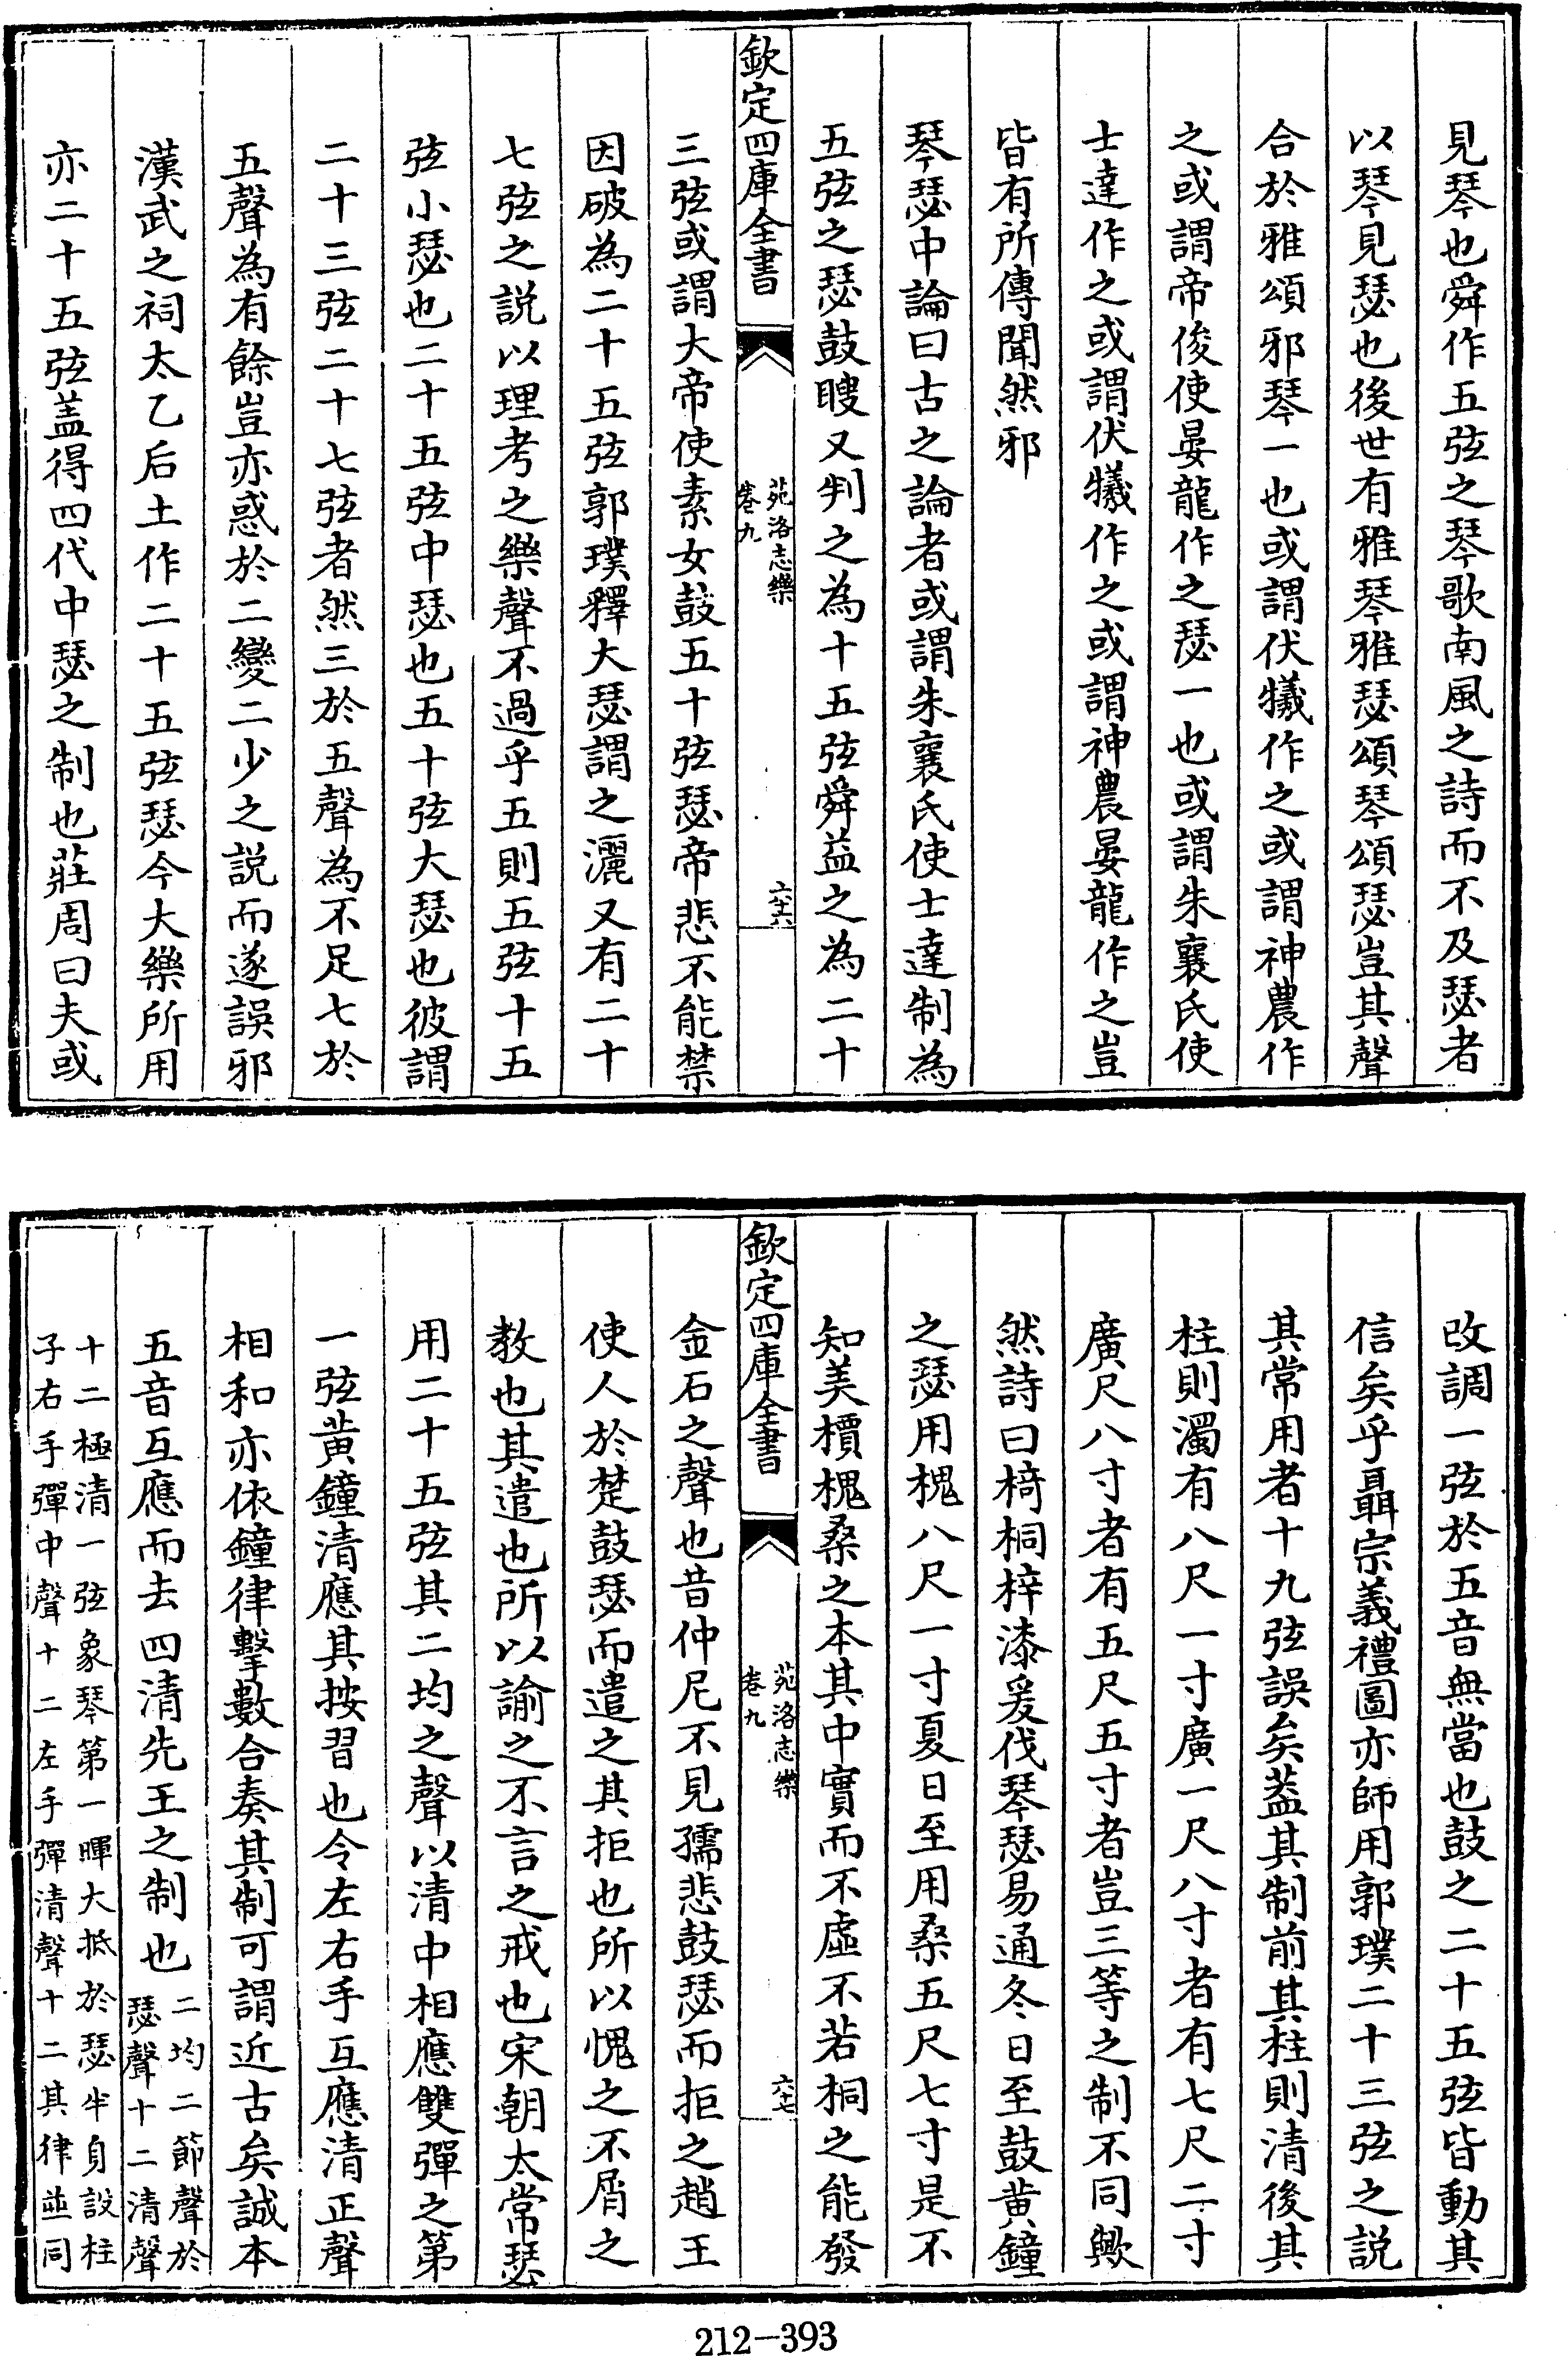 見琴也舜作五弦之琴歌南風之詩而不及瑟者
以琴見瑟也後世有雅琴雅瑟頌琴頌瑟豈其聲
合於雅頌邪琴一也或謂伏犧作之或謂神農作
之或謂帝俊使晏龍作之瑟一也或謂朱襄氏使
士達作之或謂伏犧作之或謂神農晏龍作之豈
皆有所傳聞然邪
琴瑟中論曰古之論者或謂朱襄氏使士達制為
五弦之瑟鼓瞍又判之為十五弦舜益之為二十
欽定四庫全書
苑洛志樂
卷九
六十六
三弦或謂大帝使素女鼓五十弦瑟帝悲不能禁
因破為二十五弦郭璞釋大瑟謂之灑又有二十
七弦之説以理考之樂聲不過乎五則五弦十五
弦小瑟也二十五弦中瑟也五十弦大瑟也彼謂
二十三弦二十七弦者然三於五聲為不足七於
五聲為有餘豈亦惑於二變二少之説而遂誤邪
漢武之祠太乙后土作二十五弦瑟今大樂所用
亦二十五弦盖得四代中瑟之制也莊周曰夫或
改調一弦於五音無當也鼓之二十五弦皆動其
信矣乎聶宗義禮圖亦師用郭璞二十三弦之説
其常用者十九弦誤矣葢其制前其柱則清後其
柱則濁有八尺一寸廣一尺八寸者有七尺二寸
廣尺八寸者有五尺五寸者豈三等之制不同歟
然詩曰椅桐梓漆爰伐琴瑟易通冬日至鼓黄鐘
之瑟用槐八尺一寸夏日至用桑五尺七寸是不
知美檟槐桑之本其中實而不虚不若桐之能發
欽定四庫全書
苑洛志樂
卷九
六十七
金石之聲也昔仲尼不見孺悲鼓瑟而拒之趙王
使人於楚鼓瑟而遣之其拒也所以愧之不屑之
教也其遣也所以諭之不言之戒也宋朝太常瑟
用二十五弦其二均之聲以清中相應雙彈之第
一弦黄鐘清應其按習也令左右手互應清正聲
相和亦依鐘律擊數合奏其制可謂近古矣誠本
五音互應而去四清先王之制也二均二節聲於
瑟聲十二清聲
十二極清一弦象琴第一暉大抵於瑟半身設柱
子右手彈中聲十二左手彈清聲十二其律並同
212-393